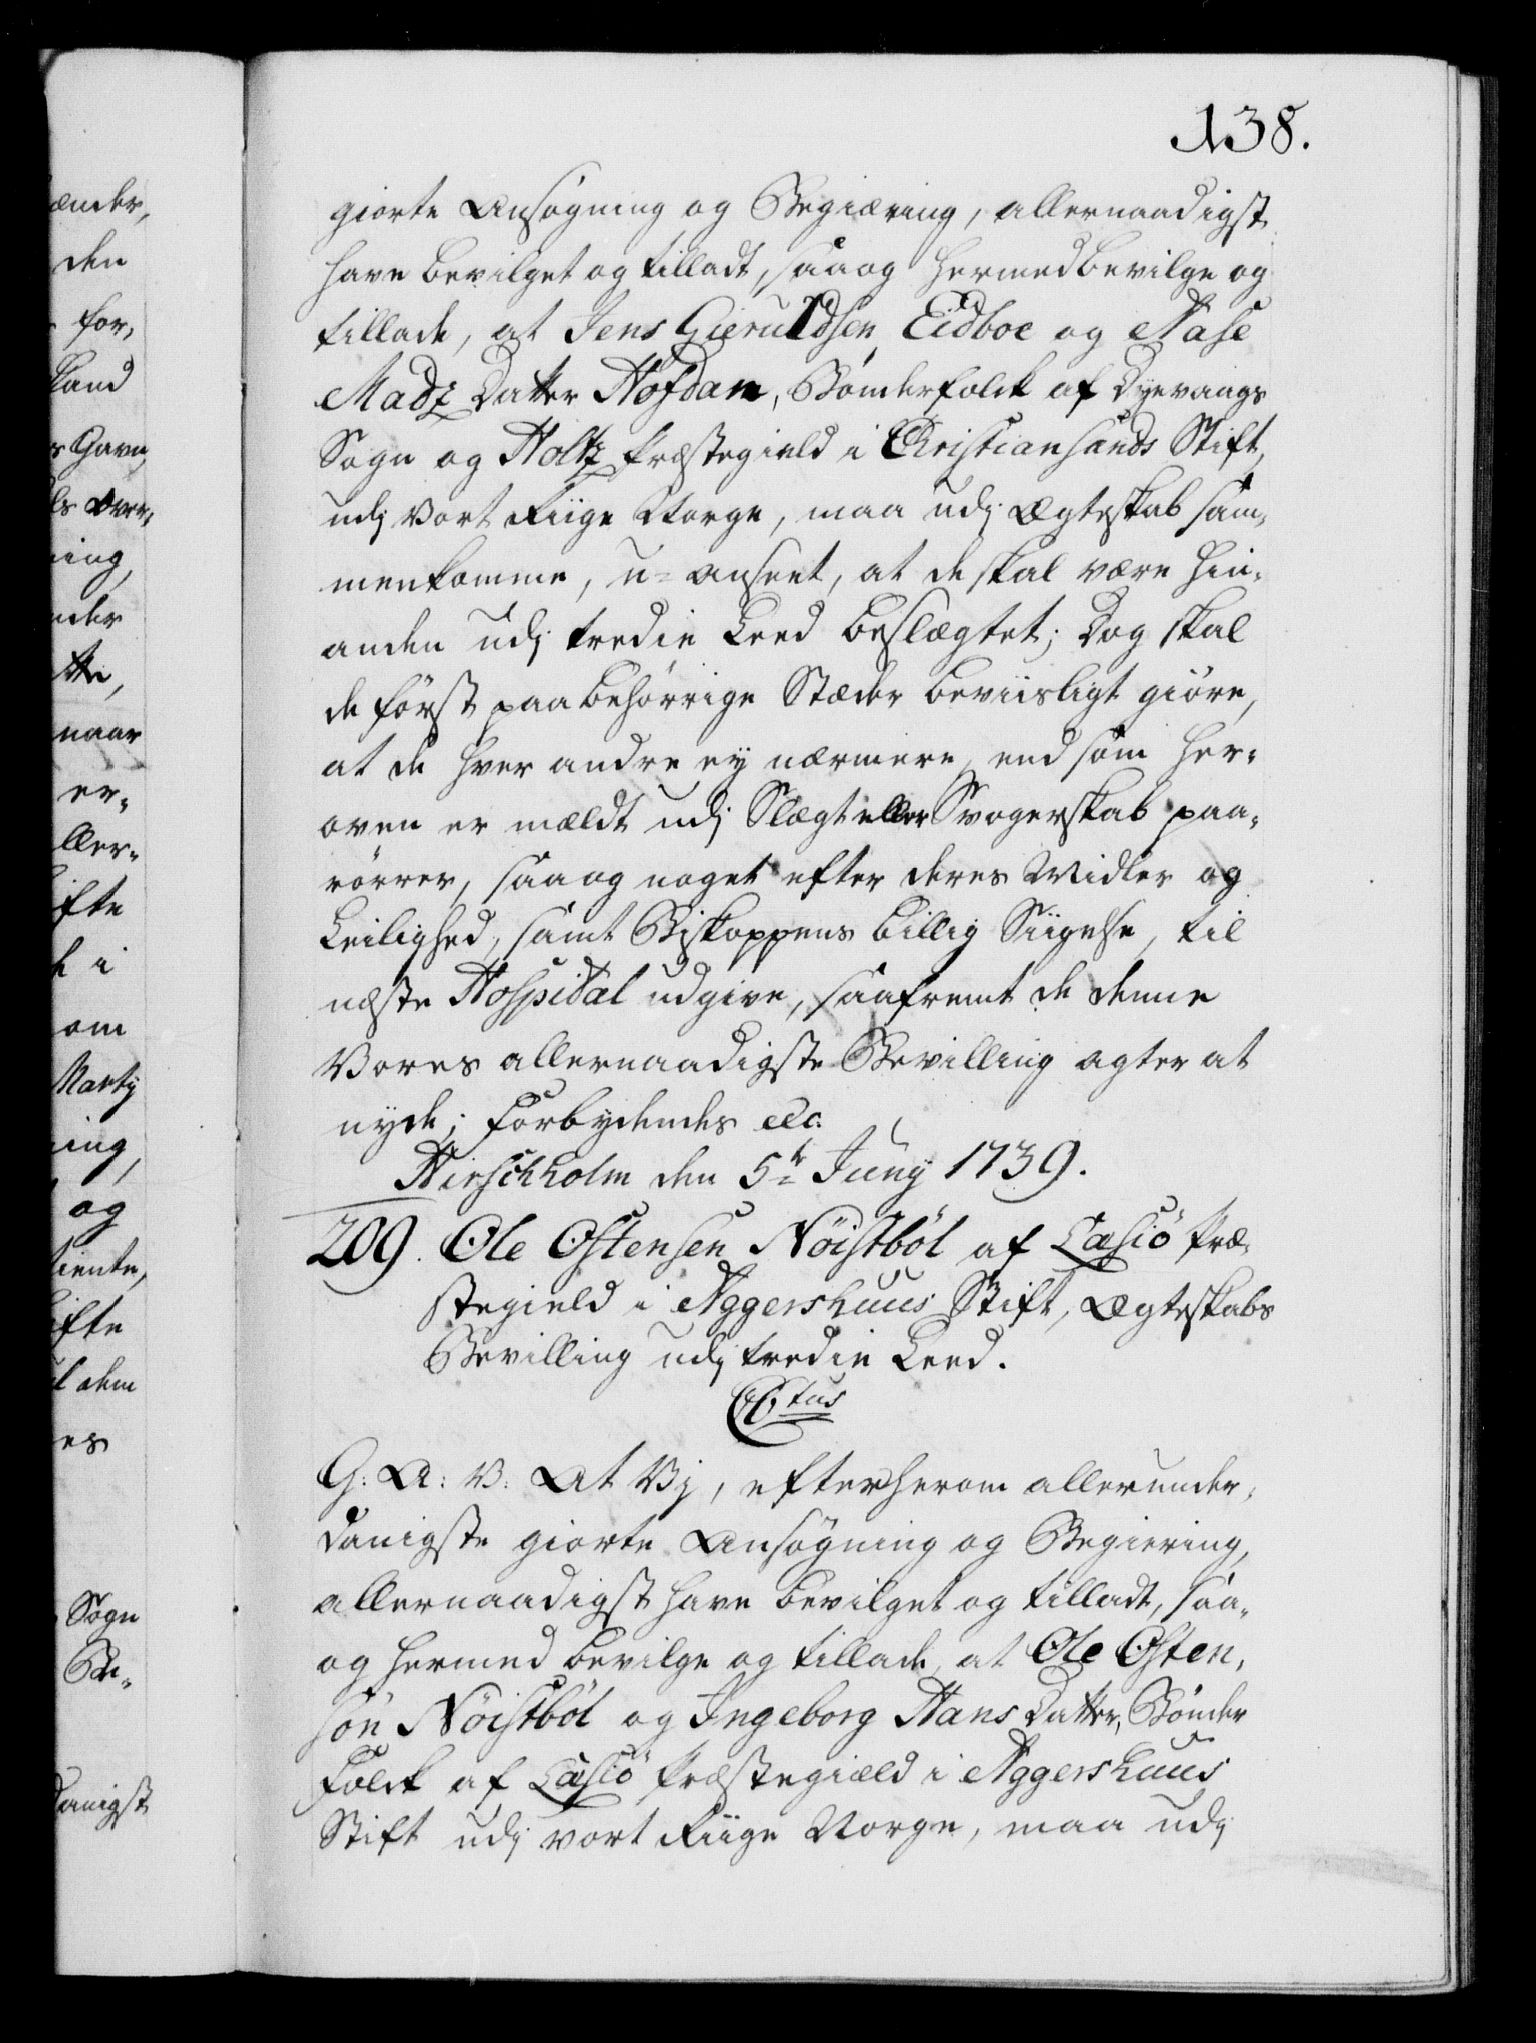 138.
giorte Ansøgning og Begiæring, allernaadigst
have bevilget og tilladt, saa og hermed bevilge og
tillade, at Jens Gieruldsen Eidboe og Aase
Madz Datter Hofdan, Bønderfolck af Dyevaags
Sogn og Holtz Præstegield i Christiansands Stift,
udj Vort Riige Norge, maa udj Ægteskab sam-
menkomme, u=anseet, at de skal være hin-
anden udj tredie Leed beslægtet; Dog skal
de først paa behørrige Stæder beviisligt giøre,
at de hver andre ej nærmere, end som her-
oven er mældt udj Slægt eller Svogerskab paa-
rører, saa og noget efter deres Midler og
Leilighed, samt Biskoppens billig Siigelse, til
næste Hospital udgive, saafremt de denne
Vores allernaadigste Bevilling agter at
nyde; Forbydendes etc.
Hirschholm den 5te Juny 1739.
209. Ole Ostensen Nöistböl af Læsiö Præ-
stegield i Aggershuus Stift, Ægteskabs
Bevilling udj tredie Leed.
G: A: V: At Vj, efter herom allerunder-
danigste giorte Ansøgning og Begiering,
allernaadigst have bevilget og tilladt, saa-
og hermed bevilge og tillade, at Ole Osten-
sön Nöistböl og Ingeborg Hans Datter, Bønder
Folck af Læsiö Præstegiæld i Aggershuus
Stift udj vort Riige Norge, maa udj